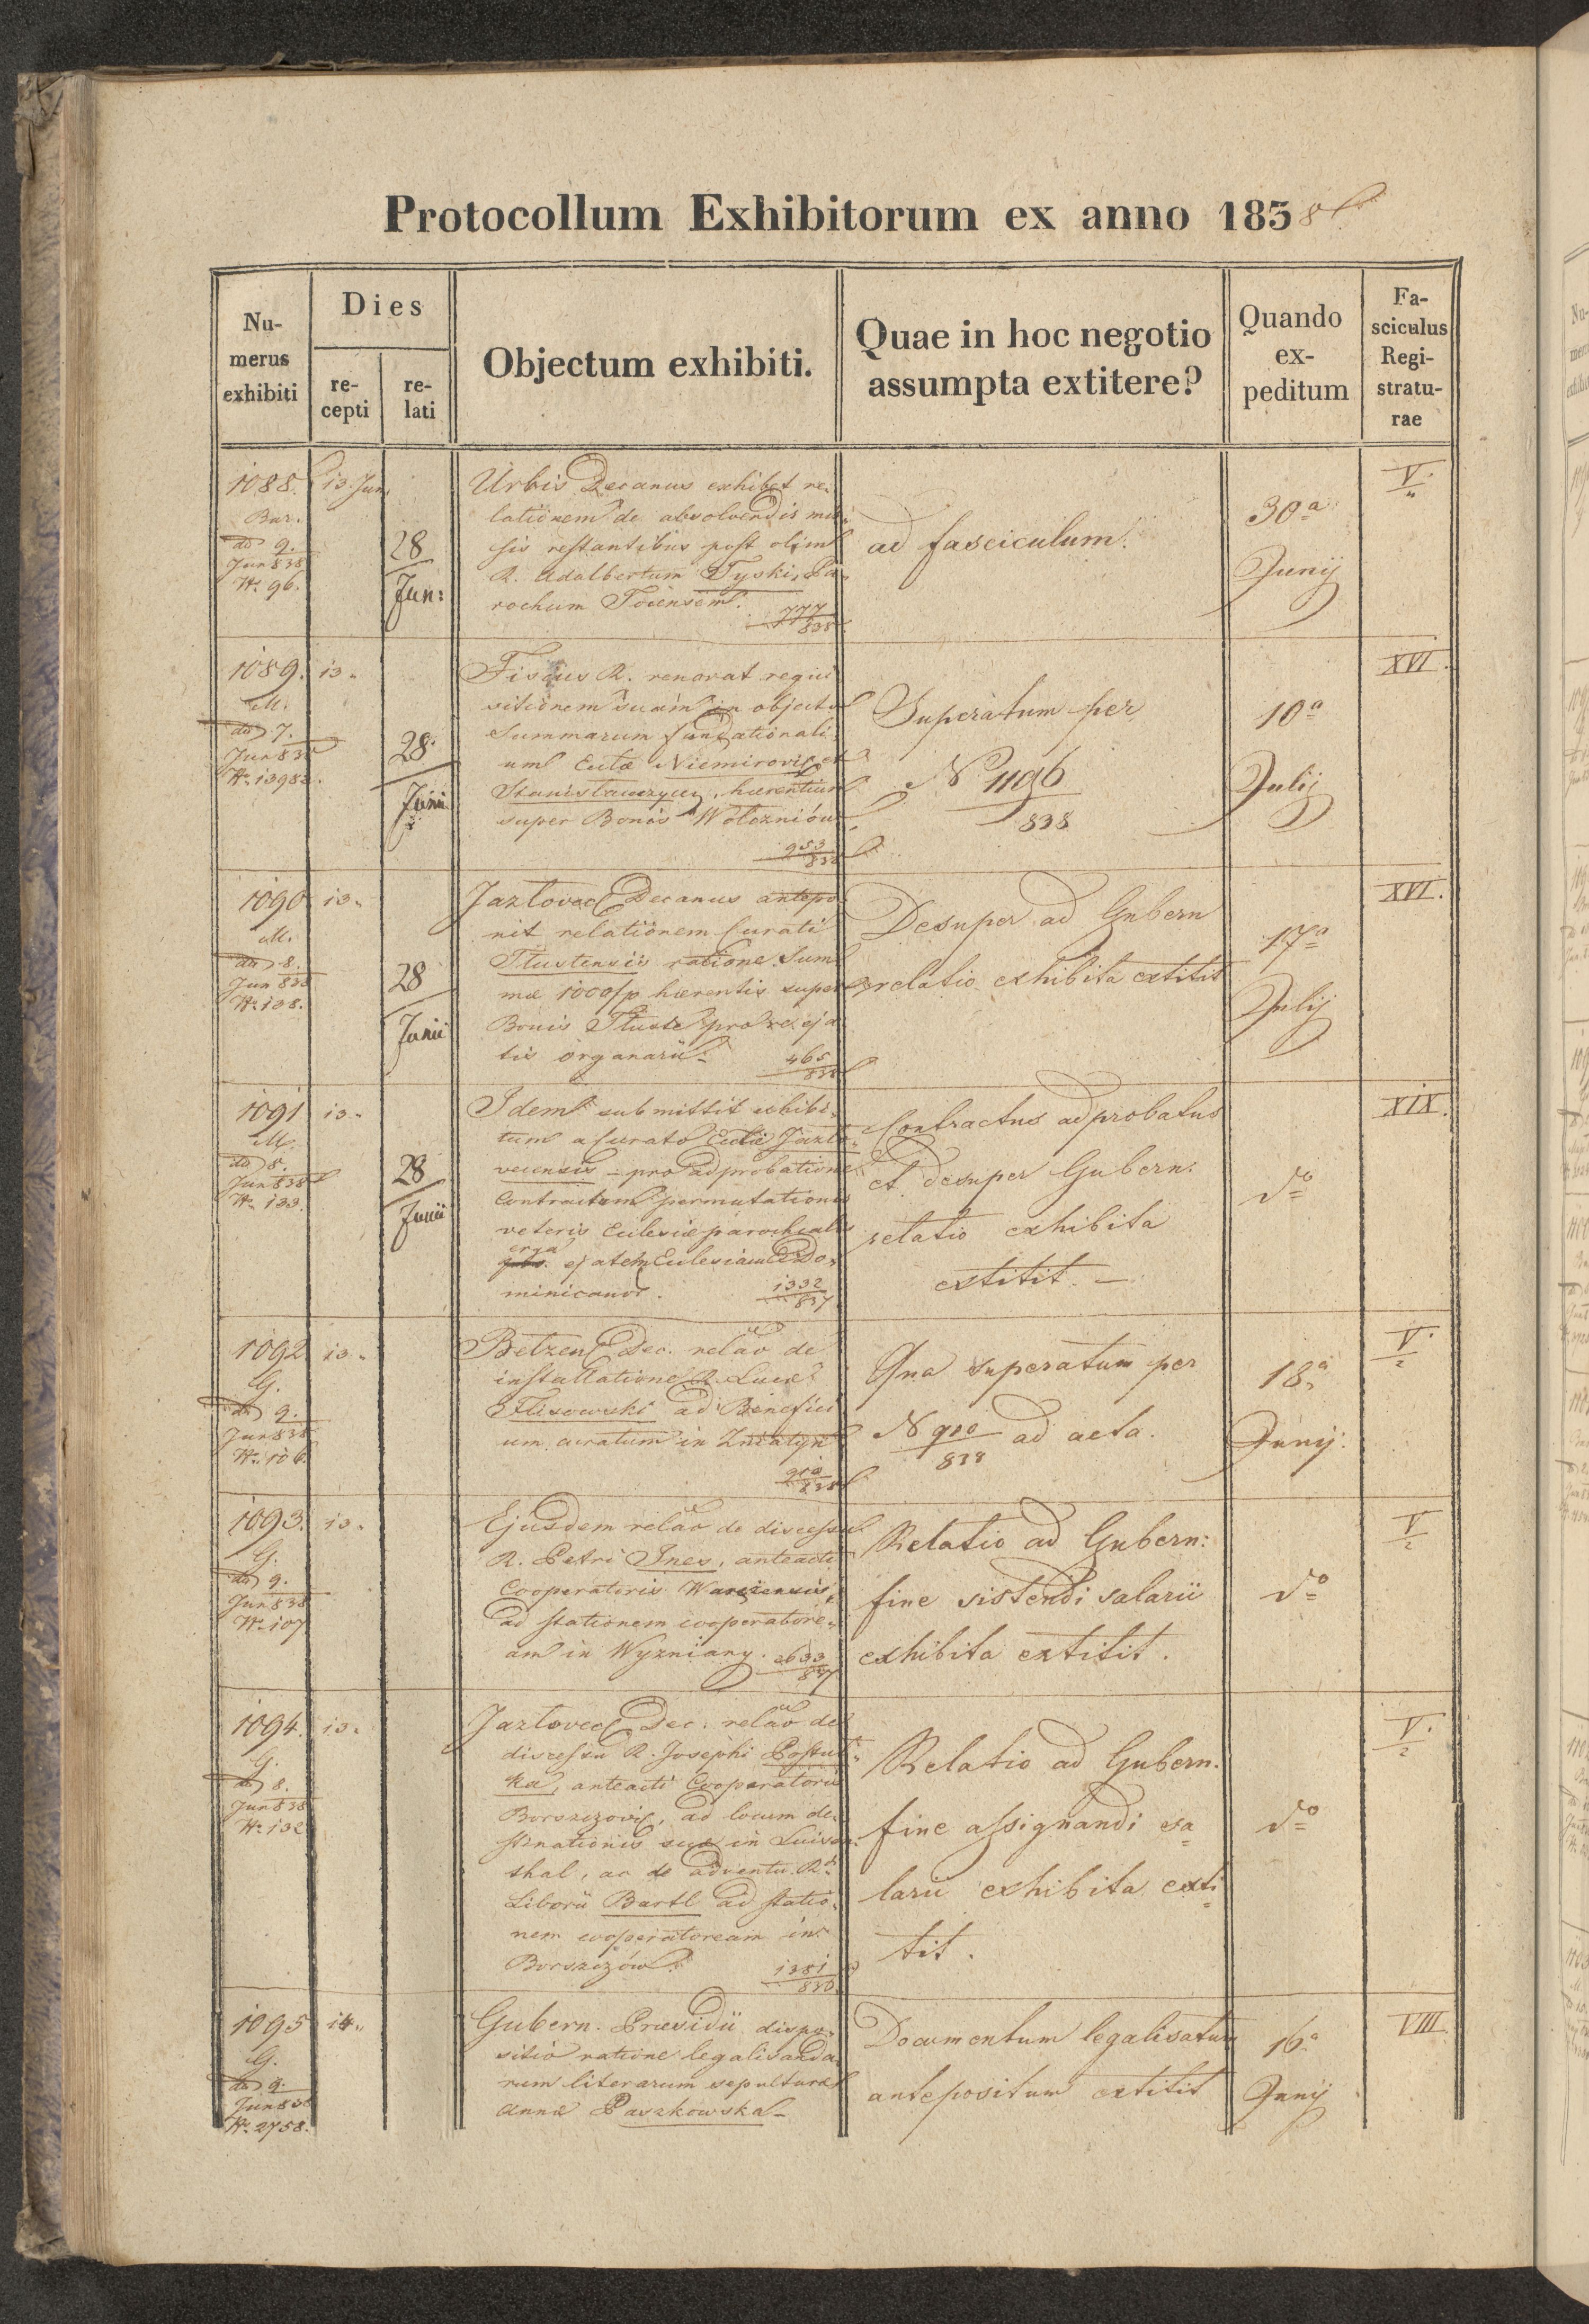 Protocollum Exhibitorum ex anno 1838
Nu-
merus
exhibiti
Dies
re-
cepti
re-
lati
Objectum exhibiti.
Quae in hoc negotio
assumpta extitere?
Quando
ex-
peditum
Fa-
sciculus
Regi-
stratu-
rae
1088.
Bar.
dd 9.
Jun 838
N. 96.
13. Jun.
28
Jun:
Urbis Decanus exhibet re-
lationem de absolvendis mis-
sis restantibus post olim
R. Adalbertum Tyski, Pa-
rochum
777
838
ad fasciculum.
30a
Junij
V.
1089.
M.
dd 7.
Jun 838
N. 13982.
13.
28
Junii
Fiscus R. renovat requi
sitionem suam in objecto
Summarum fundationali
um Eccliae Niemirovien et
Stanisławczycen, haerentium
super Bonis Wołczniów
953
838
Superatum per
N 1196
838
10a
Julij
XVI.
1090
M.
dd 8.
Jun 838
N. 138.
13.
28
Junii
Jazlovec Decanus antepo
nit relationem Curati
Tłustensis ratione Sum
mae 1000 fp haerentis super
Bonis Tłuste pro re ej a
tis organarii.
465
838
Desuper ad Gubern
relatio exhibita extitit
17a
Julij
XVI.
1091
M.
dd 8.
Jun 838
N. 133.
13.
28
Junii
Idem submittit exhibi-
tum a Curato Eccliae Jazlo-
veciensis - pro adprobatione
Contractum permutationis
veteris Ecclesiae parochialis
erga
ej atem Ecclesiam Do-
minicanor.
1332
837
Contractus adprobatus
et desuper Gubern.
relatio exhibita
extitit. -
do
XIX.
1092
G.
dd 9.
Jun 838
N. 106.
13.
Betzen Dec. relao de
installatione R. Lucae
Flisowski ad Benefici
um curatum in Zniatyn
910
838
Qua superatum per
N 910 ad acta.
838
18a
Junij.
V.
2
1093.
G.
dd 9.
Jun 838
N. 107
13.
Ejusdem relao de discessu
R. Petri Ines, anteacti
Cooperatoris Warezensis,
ad stationem cooperatore-
am in Wyzniany.
2633
837
Relatio ad Gubern:
fine sistendi salarii
exhibita extitit.
do
V
2
1094.
G.
dd 8.
Jun 838
N. 132
13.
Jazlovec Dec. relao de
discessu R. Josephi Postul-
ka, anteacti Cooperatoris
Borszczovien, ad locum de-
stinationis suae in Luisen-
thal, ac de adventu Rdi
Liborii Bartl ad statio-
nem cooperatoream in
Borszczów.
1381
838
Relatio ad Gubern.
fine assignandi sa
larii exhibita exti
tit.
do
V.
2
1095
G.
dd 9.
Jun 838
N. 2758.
14.
Gubern. Praesidii dispo-
sitio ratione legalisanda-
rum literarum sepulturae
Annae Paszkowska -
Documentum legalisatum
antepositum extitit
16a
Junij
VIII.